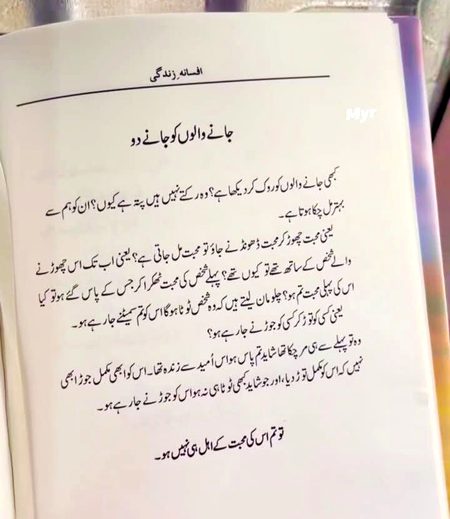 افسانہ زندگی
Myr
جانے والوں کو جانے دو
کبھی جانے والوں کو روک کر دیکھا ہے؟ وہ رکتے نہیں ہیں پتہ ہے کیوں؟ ان کو ہم سے
بہتر مل چکا ہوتا ہے۔
یعنی محبت چھوڑ کر محبت ڈھونڈنے جاؤ تو محبت مل جاتی ہے؟ یعنی اب تک اس چھوڑنے
والے شخص کے ساتھ تھے تو کیوں تھے؟ پہلے شخص کی محبت ٹھکرا کر جس کے پاس گئے ہو تو کیا
اس کی پہلی محبت تم ہو؟ چلو مان لیتے ہیں کہ وہ شخص ٹوٹا ہوگا اس کو تم سمیٹنے جا رہے ہو۔
یعنی کسی کو توڑ کر کسی کو جوڑنے جا رہے ہو؟
وہ تو پہلے سے ہی مر چکا تھا شاید تم پاس ہو اس اُمید سے زندہ تھا۔ اس کو ابھی مکمل جوڑا بھی
نہیں کہ اس کو مکمل توڑ دیا، اور جو شاید کبھی ٹوٹا ہی نہ ہو اس کو جوڑنے جا رہے ہو۔
تو تم اس کی محبت کے اہل ہی نہیں ہو۔